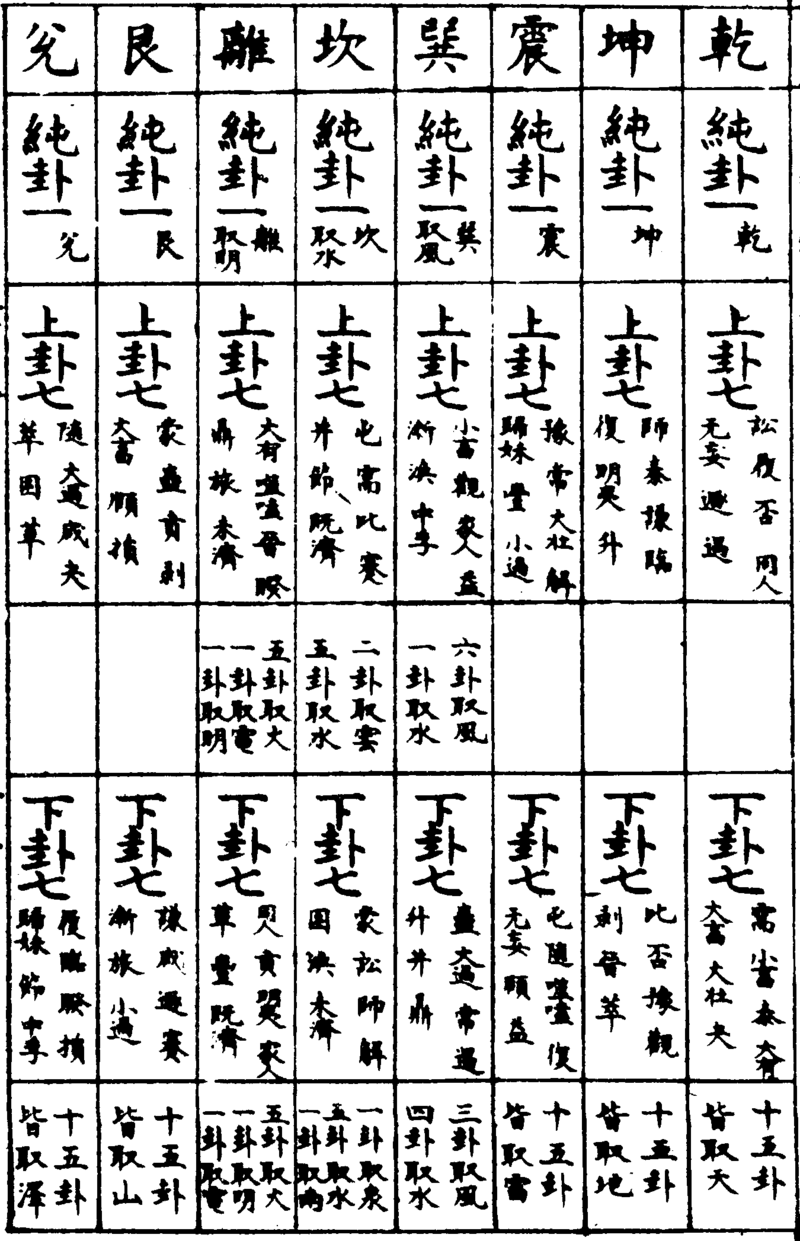 乾
純卦一
乾
上卦七
訟 履 否 同人
无妄 遯 遘
下卦七
需 小畜 泰 大有
大畜 大壯 夬
十五卦
皆取天
坤
純卦一
坤
上卦七
師 泰 謙 臨
復 明夷 升
下卦七
比 否 豫 觀
剝 晉 萃
十五卦
皆取地
震
純卦一
震
上卦七
豫 常 大壯 解
歸妹 豐 小過
下卦七
屯 隨 噬嗑 復
无妄 頤 益
十五卦
皆取雷
巽
純卦一
巽
取風
上卦七
小畜 觀 家人 益
漸 渙 中孚
六卦取風
一卦取水
下卦七
蠱 大過 常 遘
升 井 鼎
三卦取風
四卦取水
坎
純卦一
坎
取水
上卦七
屯 需 比 蹇
井 節 既濟
二卦取雲
五卦取水
下卦七
蒙 訟 師 解
困 渙 未濟
一卦取泉
五卦取水
一卦取雨
離
純卦一
離
取明
上卦七
大有 噬嗑 晉 睽
鼎 旅 未濟
五卦取火
一卦取電
一卦取明
下卦七
同人 賁 明夷 家人
革 豐 既濟
五卦取火
一卦取明
一卦取電
艮
純卦一
艮
上卦七
蒙 蠱 賁 剝
大畜 頤 損
下卦七
謙 咸 遯 蹇
漸 旅 小過
十五卦
皆取山
兌
純卦一
兌
上卦七
隨 大過 咸 夬
萃 困 革
下卦七
履 臨 睽 損
歸妹 節 中孚
十五卦
皆取澤